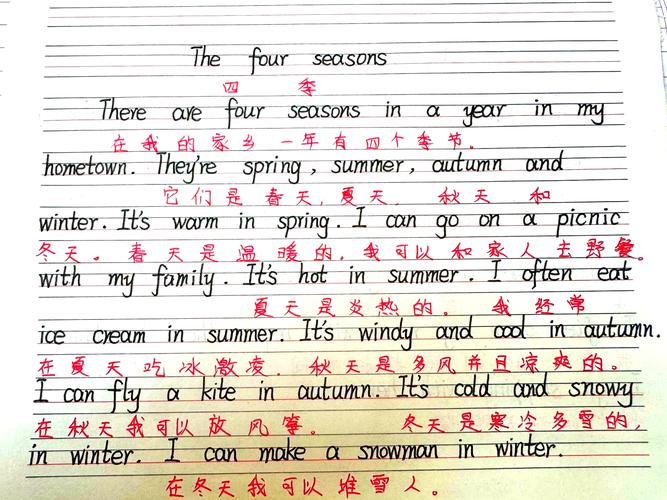 The four seasons
四 季
There are four seasons in a year in my
在我的家乡一年有四个季节。
hometown. They're spring, summer, autumn and
它们是春天,夏天, 秋天 和
winter. It's warm in spring. I can go on a picnic
冬天。春天是温暖的,我可以和家人去野餐。
with my family. It's hot in summer. I often eat
夏天是炎热的。 我经常
ice cream in summer. It's windy and cool in autumn.
在夏天吃冰激凌,秋天是多风并且凉爽的。
I can fly a kite in autumn. It's cold and snowy
在秋天我可以放风筝。 冬天是寒冷多雪的,
in winter. I can make a snowman in winter.
在冬天我可以堆雪人。